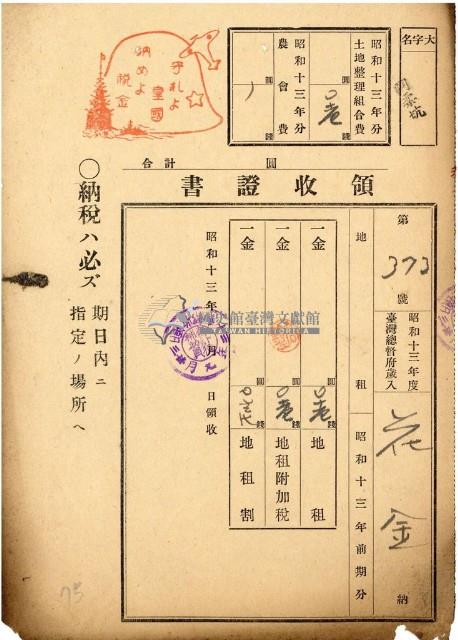 大字名
昭和十三年分
土地整理組合費
圓
錢
昭和十三年分
農會費
圓
錢
守れよ
皇國
納めよ
税金
合計　圓
領收證書
第
373
號
昭和十三年度
臺灣總督府歲入
金
納
地租
昭和十三年前期分
一金
圓
錢
地租
一金
圓
錢
地租附加稅
一金
圓
錢
地租割
昭和十三年
月
日領收
國史館臺灣文獻館
TAIWAN HISTORICA
〇納稅ハ必ズ
期日內ニ
指定ノ場所ヘ
75